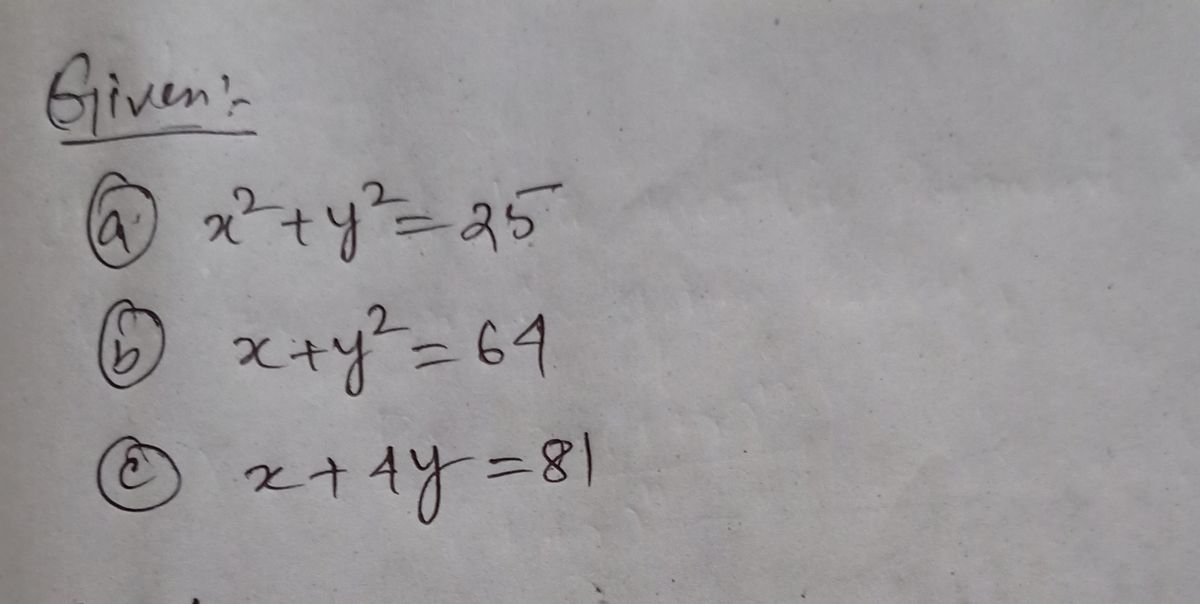 Given:-
(a) x²+y²=25
(b) x+y²=64
(c) x+4y=81